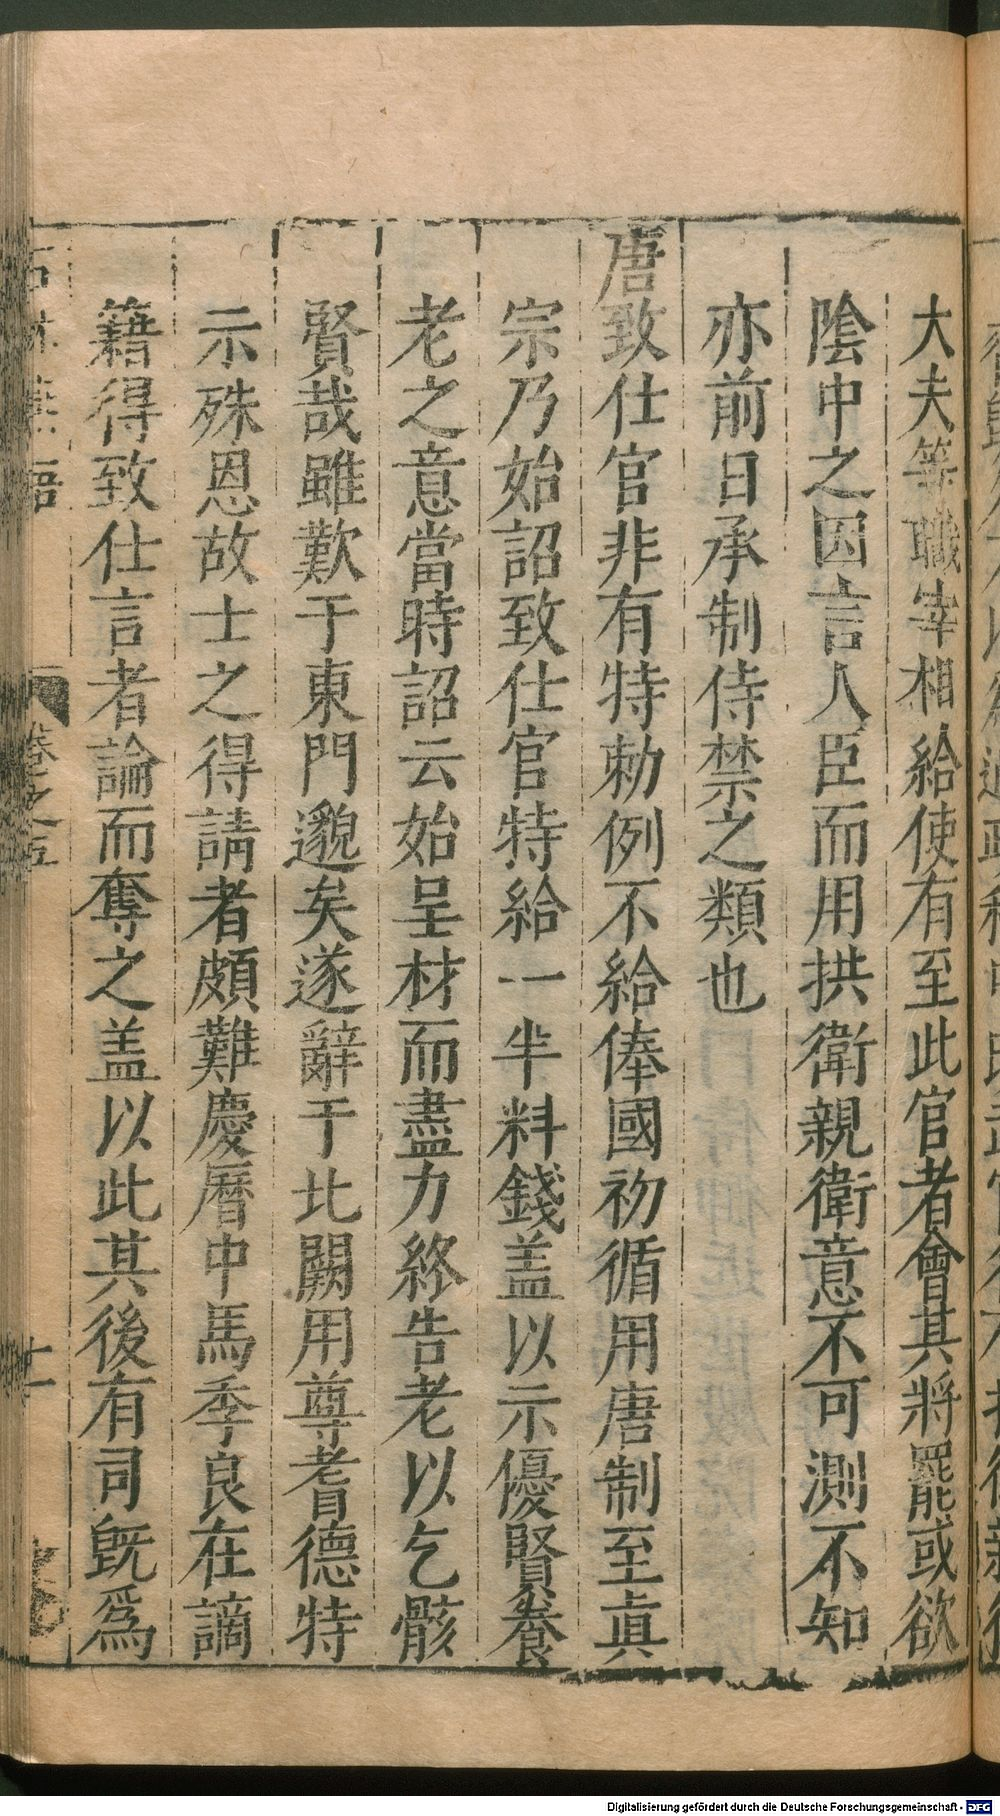 大夫等職宰相給使有至此官者會其將罷或欲
陰中之因言人臣而用拱衛親衛意不可測不知
亦前日承制侍禁之類也
唐致仕官非有特勅例不給俸國初循用唐制至真
宗乃始詔致仕官特給一半料錢盖以示優賢養
老之意當時詔云始呈材而盡力終告老以乞骸
賢哉雖歎于東門邈矣遂辭于北闕用尊耆德特
示殊恩故士之得請者頗難慶曆中馬季良在謫
籍得致仕言者論而奪之盖以此其後有司旣爲
石林燕語
卷之五
十一
Digitalisierung gefördert durch die Deutsche Forschungsgemeinschaft - DFG